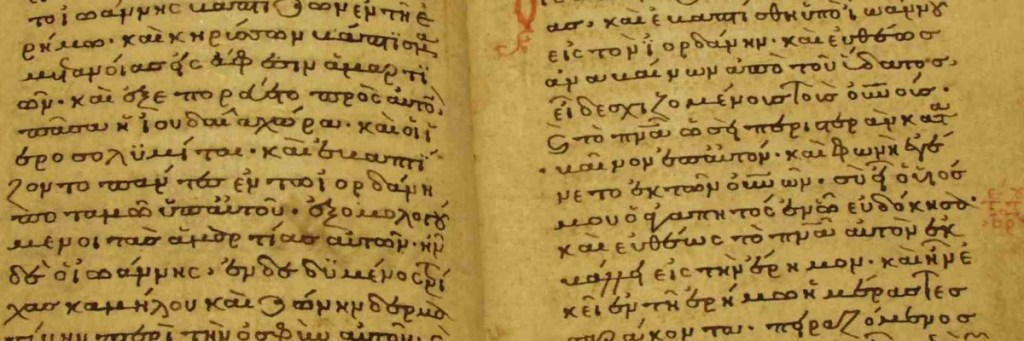 το ἰωάννης βαπτίζων ἐν τῆ ἐ
ρήμω· καὶ κηρύσσων βάπτισμα
μετανοίας εἰς ἄφεσιν ἁμαρτι
ῶν· καὶ ἐξεπορεύετο πρὸς αὐτὸν
πᾶσα ἡ ἰουδαία χώρα· καὶ οἱ ἱ
εροσολυμίται· καὶ ἐβαπτί
ζοντο πάντες ἐν τῶ ἰορδάνη
ποταμῶ ὑπ' αὐτοῦ· ἐξομολογού
μενοι τὰς ἁμαρτίας αὐτῶν· ἦν
δὲ ὁ ἰωάννης· ἐνδεδυμένος τρί
χας καμήλου καὶ ζώνην δερμα
τίνην περὶ τὴν ὀσφὺν αὐτοῦ·
ας· καὶ ἐβαπτίσθη ὑπὸ ἰωάννου
εἰς τὸν ἰορδάνην· καὶ εὐθέως
ἀναβαίνων ἀπὸ τοῦ ὕδατος,
εἶδε σχιζομένους τοὺς οὐνούς·
καὶ τὸ πνα ὡσεὶ περιστερὰν κατα
βαῖνον ἐπ' αὐτόν· καὶ φωνὴ ἐγέ
νετο ἐκ τῶν οὐνῶν· σὺ εἶ ὁ υἱός
μου ὁ ἀγαπητός ἐν ὧ εὐδόκησα·
καὶ εὐθέως τὸ πνα αὐτὸν ἐκ
βάλλει εἰς τὴν ἔρημον· καὶ ἦν ἐ
κεῖ ἐν τῆ ἐρήμω ἡμέρας τεσ
σαράκοντα· πειραζόμενος